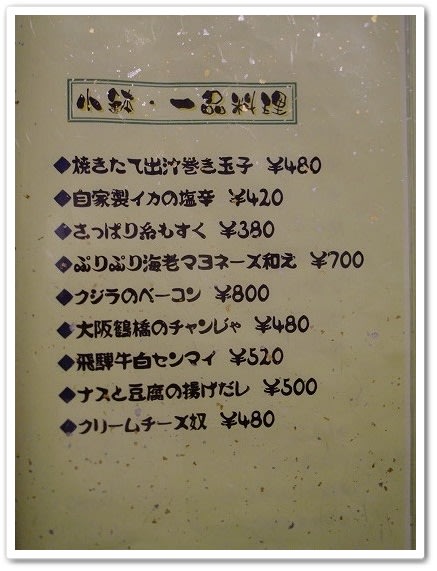 小鉢・一品料理
◆焼きたて出汁巻き玉子 ¥480
◆自家製イカの塩辛 ¥420
◆さっぱり糸もずく ¥380
◆ぷりぷり海老マヨネーズ和え ¥700
◆クジラのベーコン ¥800
◆大阪鶴橋のチャンじゃ ¥480
◆飛騨牛白センマイ ¥520
◆ナスと豆腐の揚げだし ¥500
◆クリームチーズ奴 ¥480